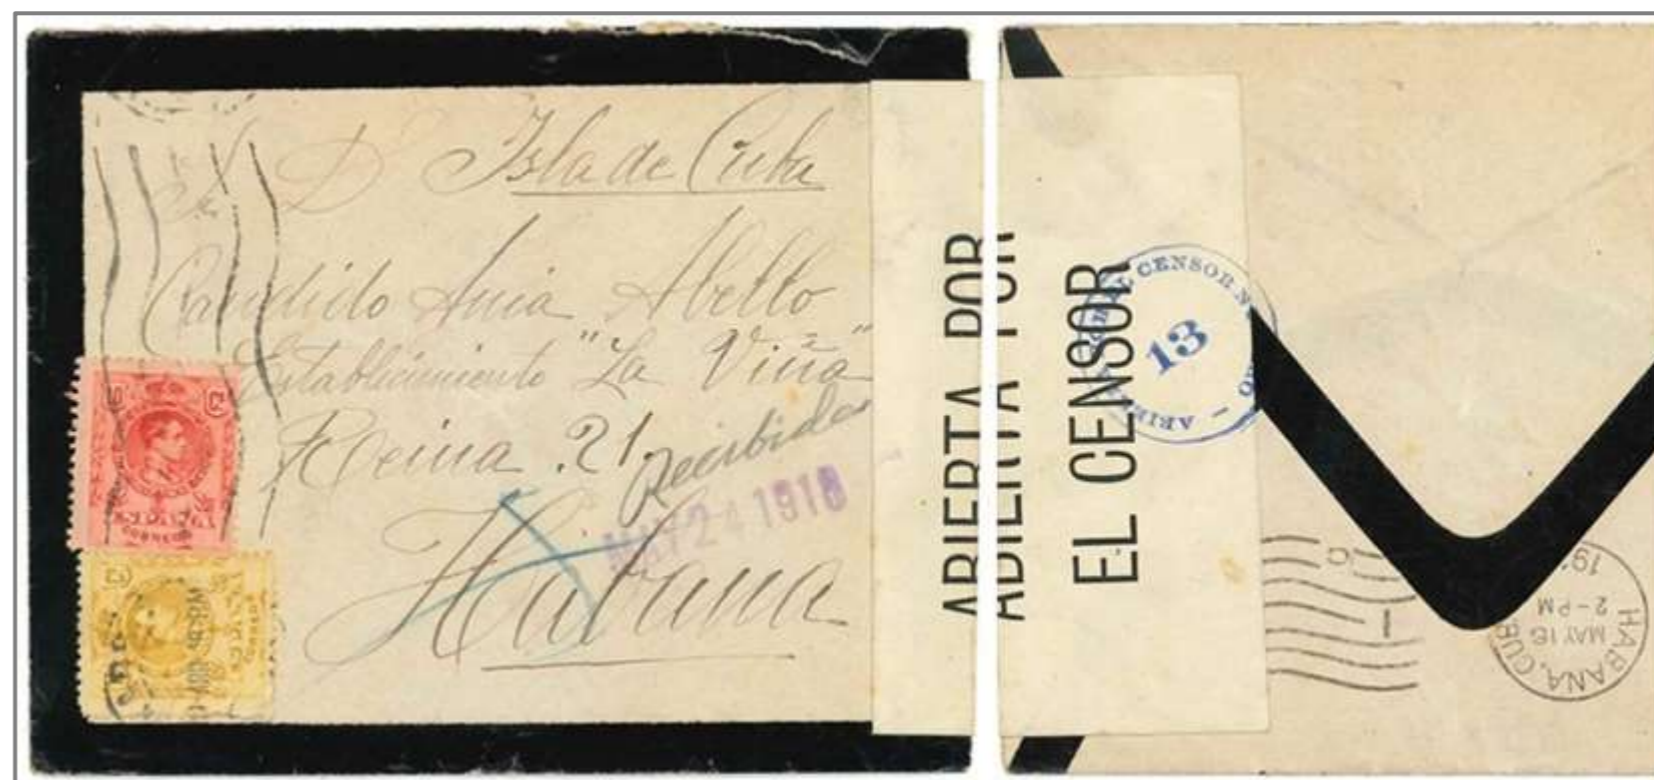 Isla de Cuba
D
Candido Ania Abello
Establecimiento "La Viña"
Reina 21.
Recibida
MAY 24 1918
Habana
CORREOS
ABIERTA POR
ABIERTA POR
EL CENSOR
CENSOR N
13
HABANA, CUB
MAY 16
2-PM
19